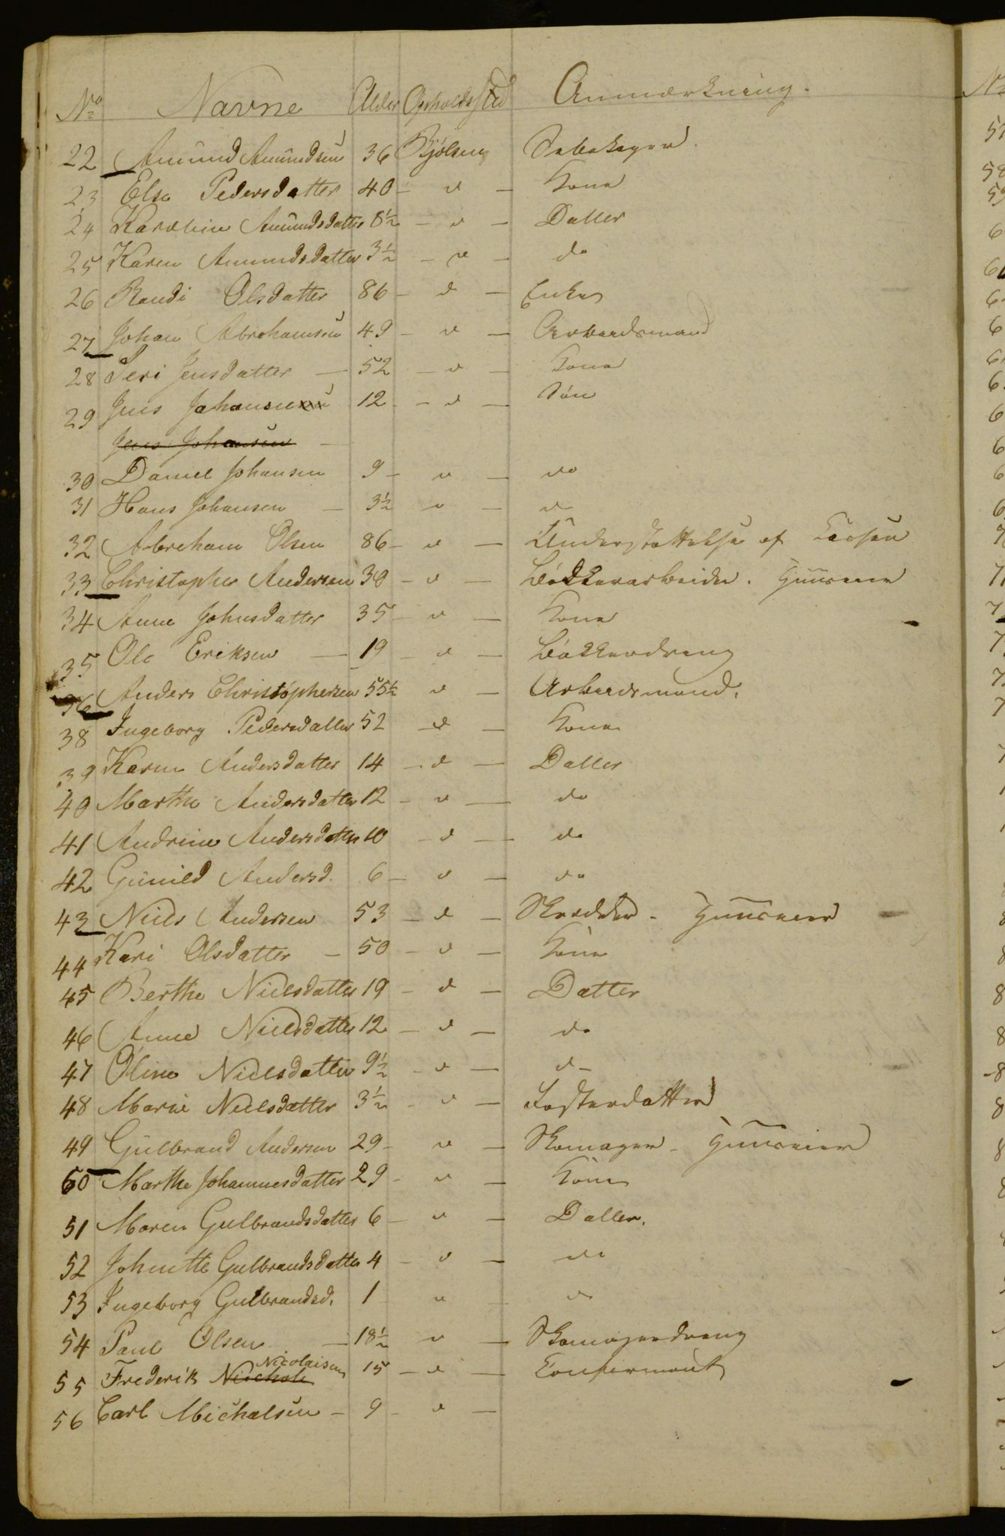 No Navne Alder Opholdssted Anmærkning.
22 Amund Amundsen 36 Bjølsen
23 Else Pedersdatter 40 - d - Kone
24 Karoline Amundsdatter 8½ - d - Datter
25 Karen Amundsdatter 3½ - d - do
26 Randi Olsdatter 86 - d - Enke
27 Johan Abrahamsen 49 - d - Arbeidsmand
28 Siri Jensdatter - 52 - d - Kone
29 Jens Johansen 12 - d - Søn
Jens Johansen -
30 Daniel Johansen 9 - d - do
31 Hans Johansen - 3½ d - d
32 Abraham Olsen 86 - d - Understøttelse af Cassen
33 Christopher Andersen 30 - d - Huuseier
34 Anne Johnsdatter 35 - d - Kone
35 Ole Eriksen - 19 - d -
36 Anders Christophersen 55½ d - Arbeidsmand.
38 Ingeborg Pedersdatter 52 - d - Kone
39 Karen Andersdatter 14 - d - Datter
40 Marthe Andersdatter 12 - d - do
41 Andrine Andersdatter 10 - d - do
42 Gunild Andersd. 6 - d - do
43 Niels Andersen 53 - d - Skrædder - Huuseier
44 Kari Olsdatter - 50 - d - Kone
45 Berthe Nielsdatter 19 - d - Datter
46 Anne Nielsdatter 12 - d - do
47 Oline Nielsdatter 9½ - d - d-
48 Marie Nielsdatter 3½ - d - Fosterdatter
49 Gulbrand Andersen 29 - d - Skomager - Huuseier
50 Marthe Johannesdatter 29 - d - Kone
51 Maren Gulbrandsdatter 6 - d - Datter.
52 Johnette Gulbrandsdatter 4 - d - do
53 Ingeborg Gulbrandsd. 1 - d - d
54 Paul Olsen - 18½ d - Skomagerdreng
Nicolaisen
55 Frederik 15 - d - Confirmant
56 Carl Michalsen - 9 - d -